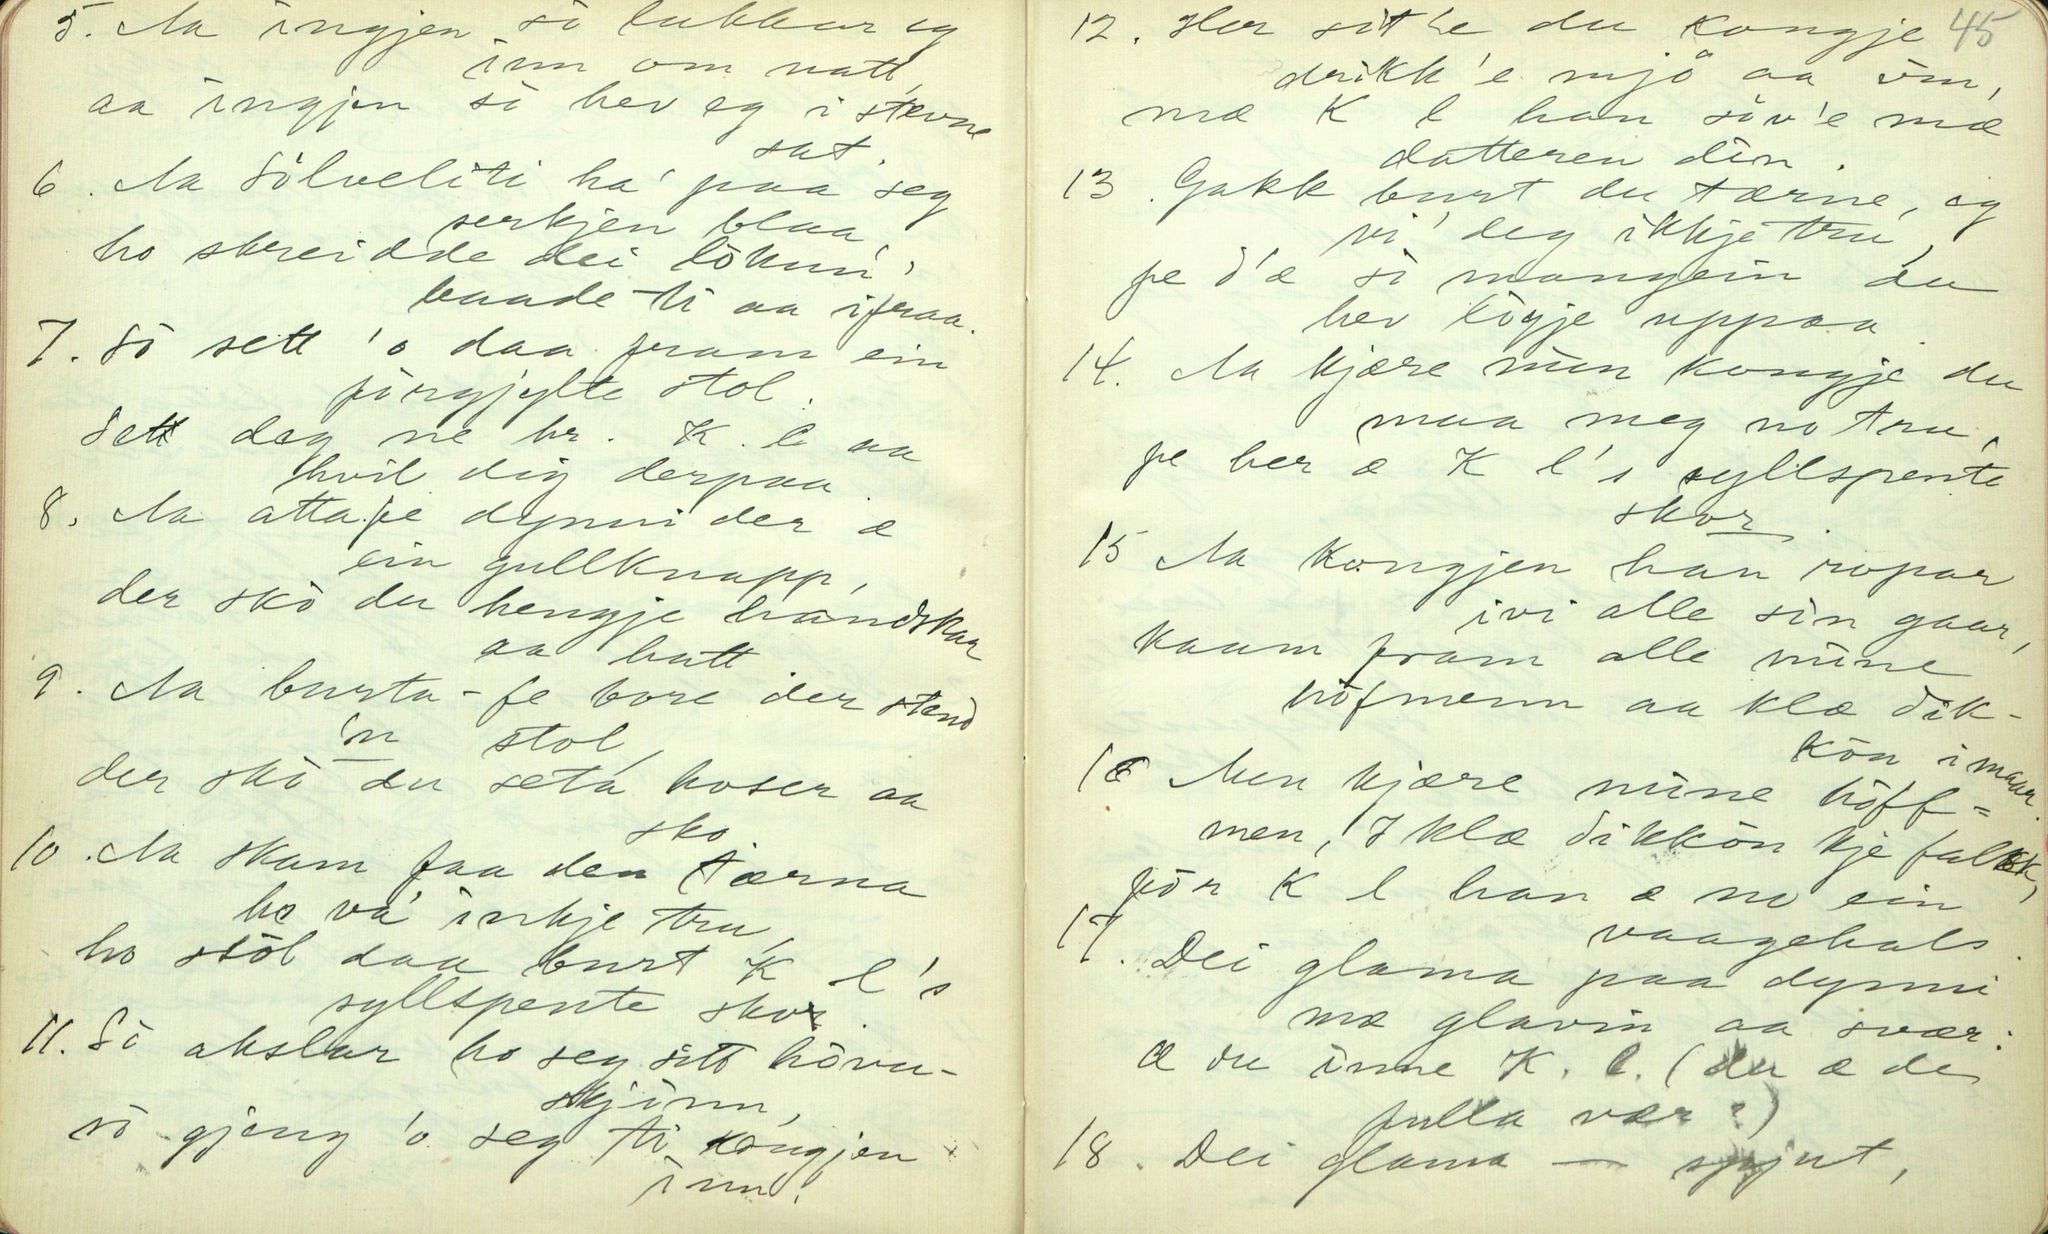 5. Aa ingjen so lukkar eg
inn om natt,
aa ingjen so hev eg i stevne
sat.
6. Aa Sölveliti ha' paa seg
serkjen blaa,
ho skreidde dei lökun'
baade ti aa ifraa.
7. So sett 'o daa fram ein
förgjylte stol.
Sett deg ne hr. K. l aa
hvil dig derpaa.
8. Aa attafe dynni der æ
ein gullknapp,
der sko du hengje handskar
aa hatt
9. Aa burta-fe bore der stend
'n stol,
der sko du seta hoser aa
sko.
10. Aa skam faa den tærna
ho va' inkje tru,
ho stol daa burt K l's
syllspente skor.
11. So akslar ho seg sitt hövu-
skjinn,
so gjeng 'o seg ti kongjen
inn.
45
12. Her sit'e du kongje
drikk'e mjö aa vin,
mæ K l han söv'e mæ
datteren din.
13. Gakk burt du tærne, eg
vi' deg ikkje tru,
fe d'æ so mangein du
hev lögje uppaa.
14. Aa kjære min kongje du
maa meg no tru,
fe her æ K l's syllspente
skor.
15 Aa kongjen han ropar
ivi alle sin gaar,
kaam fram alle mine
hofmenn aa klæ dik-
kön i maar.
16 Men kjære mine höff=
men, I klæ dikkön kje falsk,
för K l han æ no ein
vaagehals.
17. Dei glama paa dynni
mæ glavin aa svær:
Æ du inne K. l. (du æ de
fulla vær?)
18. Dei glama — spjut,